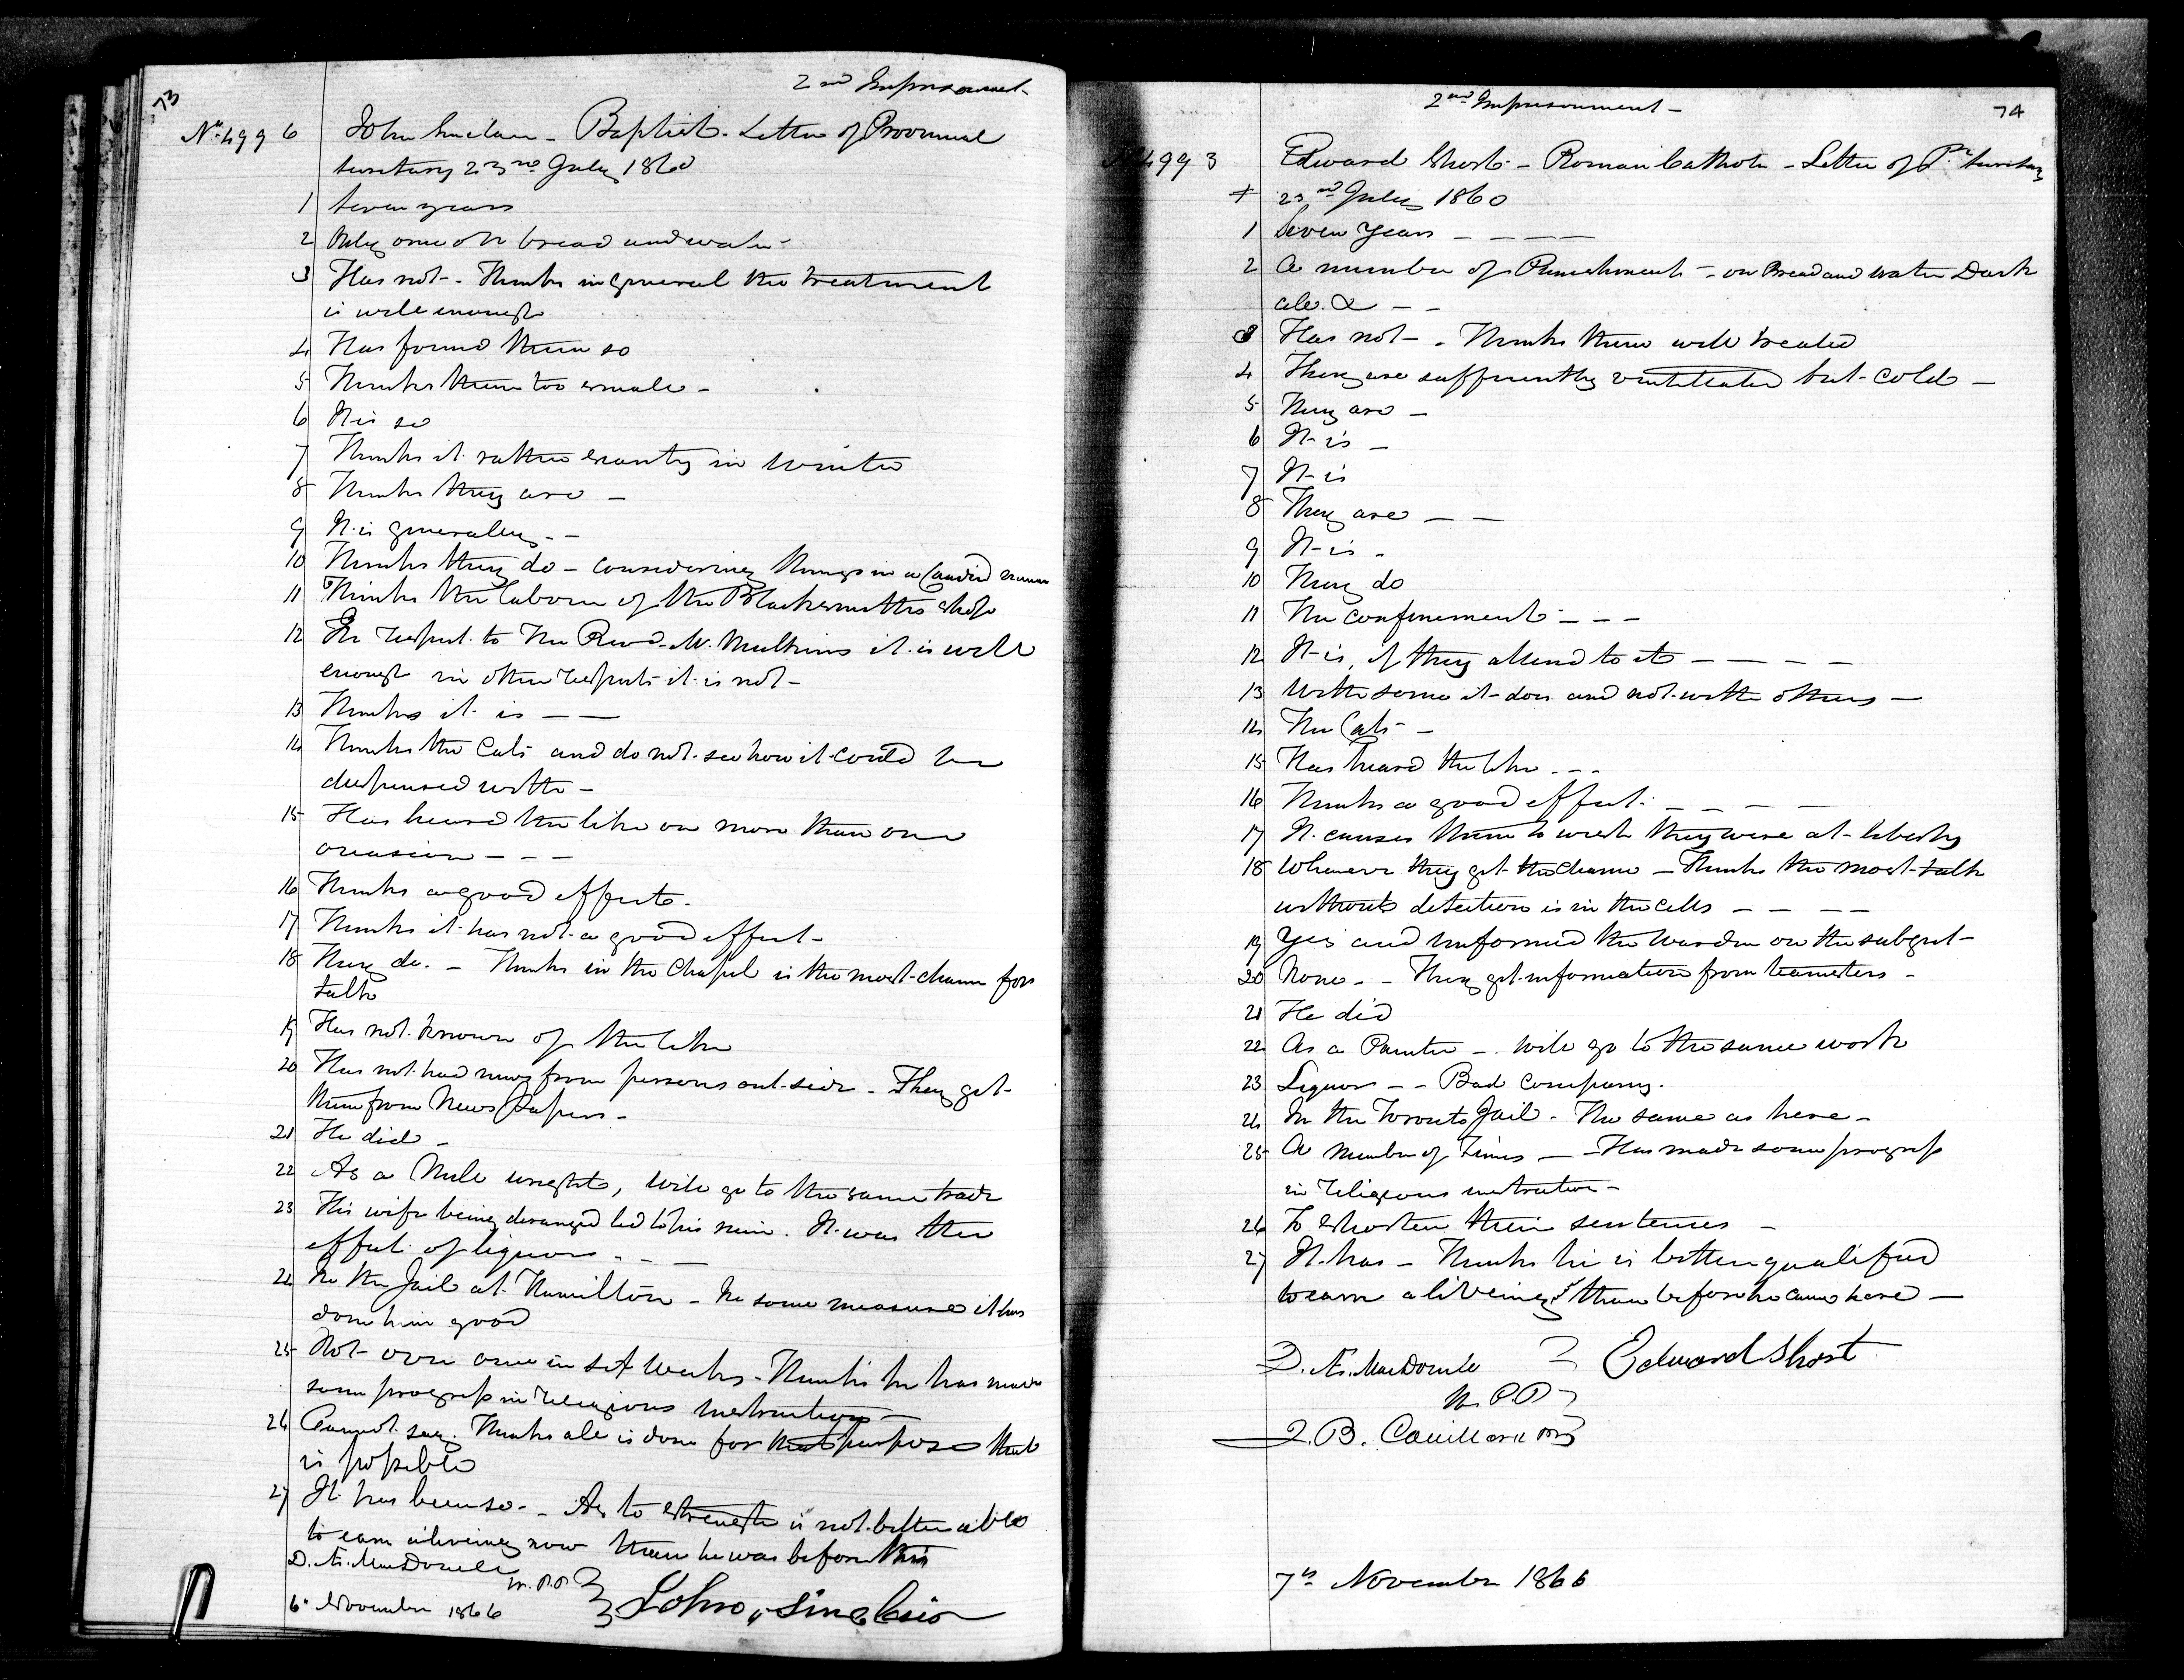 73
2nd Imprisonment-
No 4996 John Sinclair - Baptist - Letter of Provincial
Secretary 23rd July 1860
1 Seven years
2 Only one on bread and water -
3 Has not - Thinks in general the treatment
is well enough
4 Has found them so
5 Thinks them too small -
6 It is so
7 Thinks it rather scanty in Winter
8 Thinks they are -
9 It is generally - -
10 Thinks they do - considering things in a Candid manner
11 Thinks the labour of the Blacksmiths shop
12 In respect to The Revd Mr. Mulkins it is well
enough in other respects it is not -
13 Thinks it is - -
14 Thinks the Cats and do not see how it could be
dispensed with -
15 Has heard the like on more than one
occasion - - -
16 Thinks a good effect.
17 Thinks it has not a good effect -
18 They do. - Thinks in the Chapel is the most chance for
talk
19 Has not known of the like
20 Has not had news from persons outside - They get
them from News Papers -
21 He did -
22 As a Mill wright, will go to the same trade
23 His wife being deranged led to his ruin. It was the
effect of liquor - -
24 In the Jail at Hamilton - In some measure it has
done him good
25 Not over once in six Weeks - Thinks he has made
some progress in religious instruction -
26 Cannot say. Thinks all is done for that purpose that
is possible
27 It has been so - As to strength is not better able
to earn a liveing now than he was before this
D. Æ. MacDonell
M.P.P.
6th November 1866
John Sinclair
74
2nd Imprisonment -
No 4993 Edward Short - Roman Catholic - Letter of Pl Secretary
+ 23rd July 1860
1 Seven Years - - - -
2 A number of Punishments - on Bread and water Dark
cell &c - -
3 Has not - . Thinks them well treated
4 They are sufficiently ventilated but cold -
5 They are -
6 It is -
7 It is
8 They are - -
9 It is -
10 They do
11 The confinement - - -
12 It is, if they attend to it - - - -
13 With some it does and not with others -
14 The Cats -
15 Has heard the like - - -
16 Thinks a good effect. - - - -
17 It causes them to wish they were at liberty
18 Whenever they get the chance - Thinks the most talk
without detection is in the cells - - - -
19 Yes and informed the Warden on the subject -
20 None - - They get information from teamsters -
21 He did
22 As a Painter - . Will go to the same work
23 Liquor - - Bad Company.
24 In the Toronto Jail - The same as here -
25 A number of Times - - Has made some progress
in religious instruction -
26 To shorten their sentences -
27 It has - Thinks he is better qualified
to earn a liveing than before he came here -
D. Æ. MacDonell Edward Short
M.P.P.
J. B.
7th November 1866